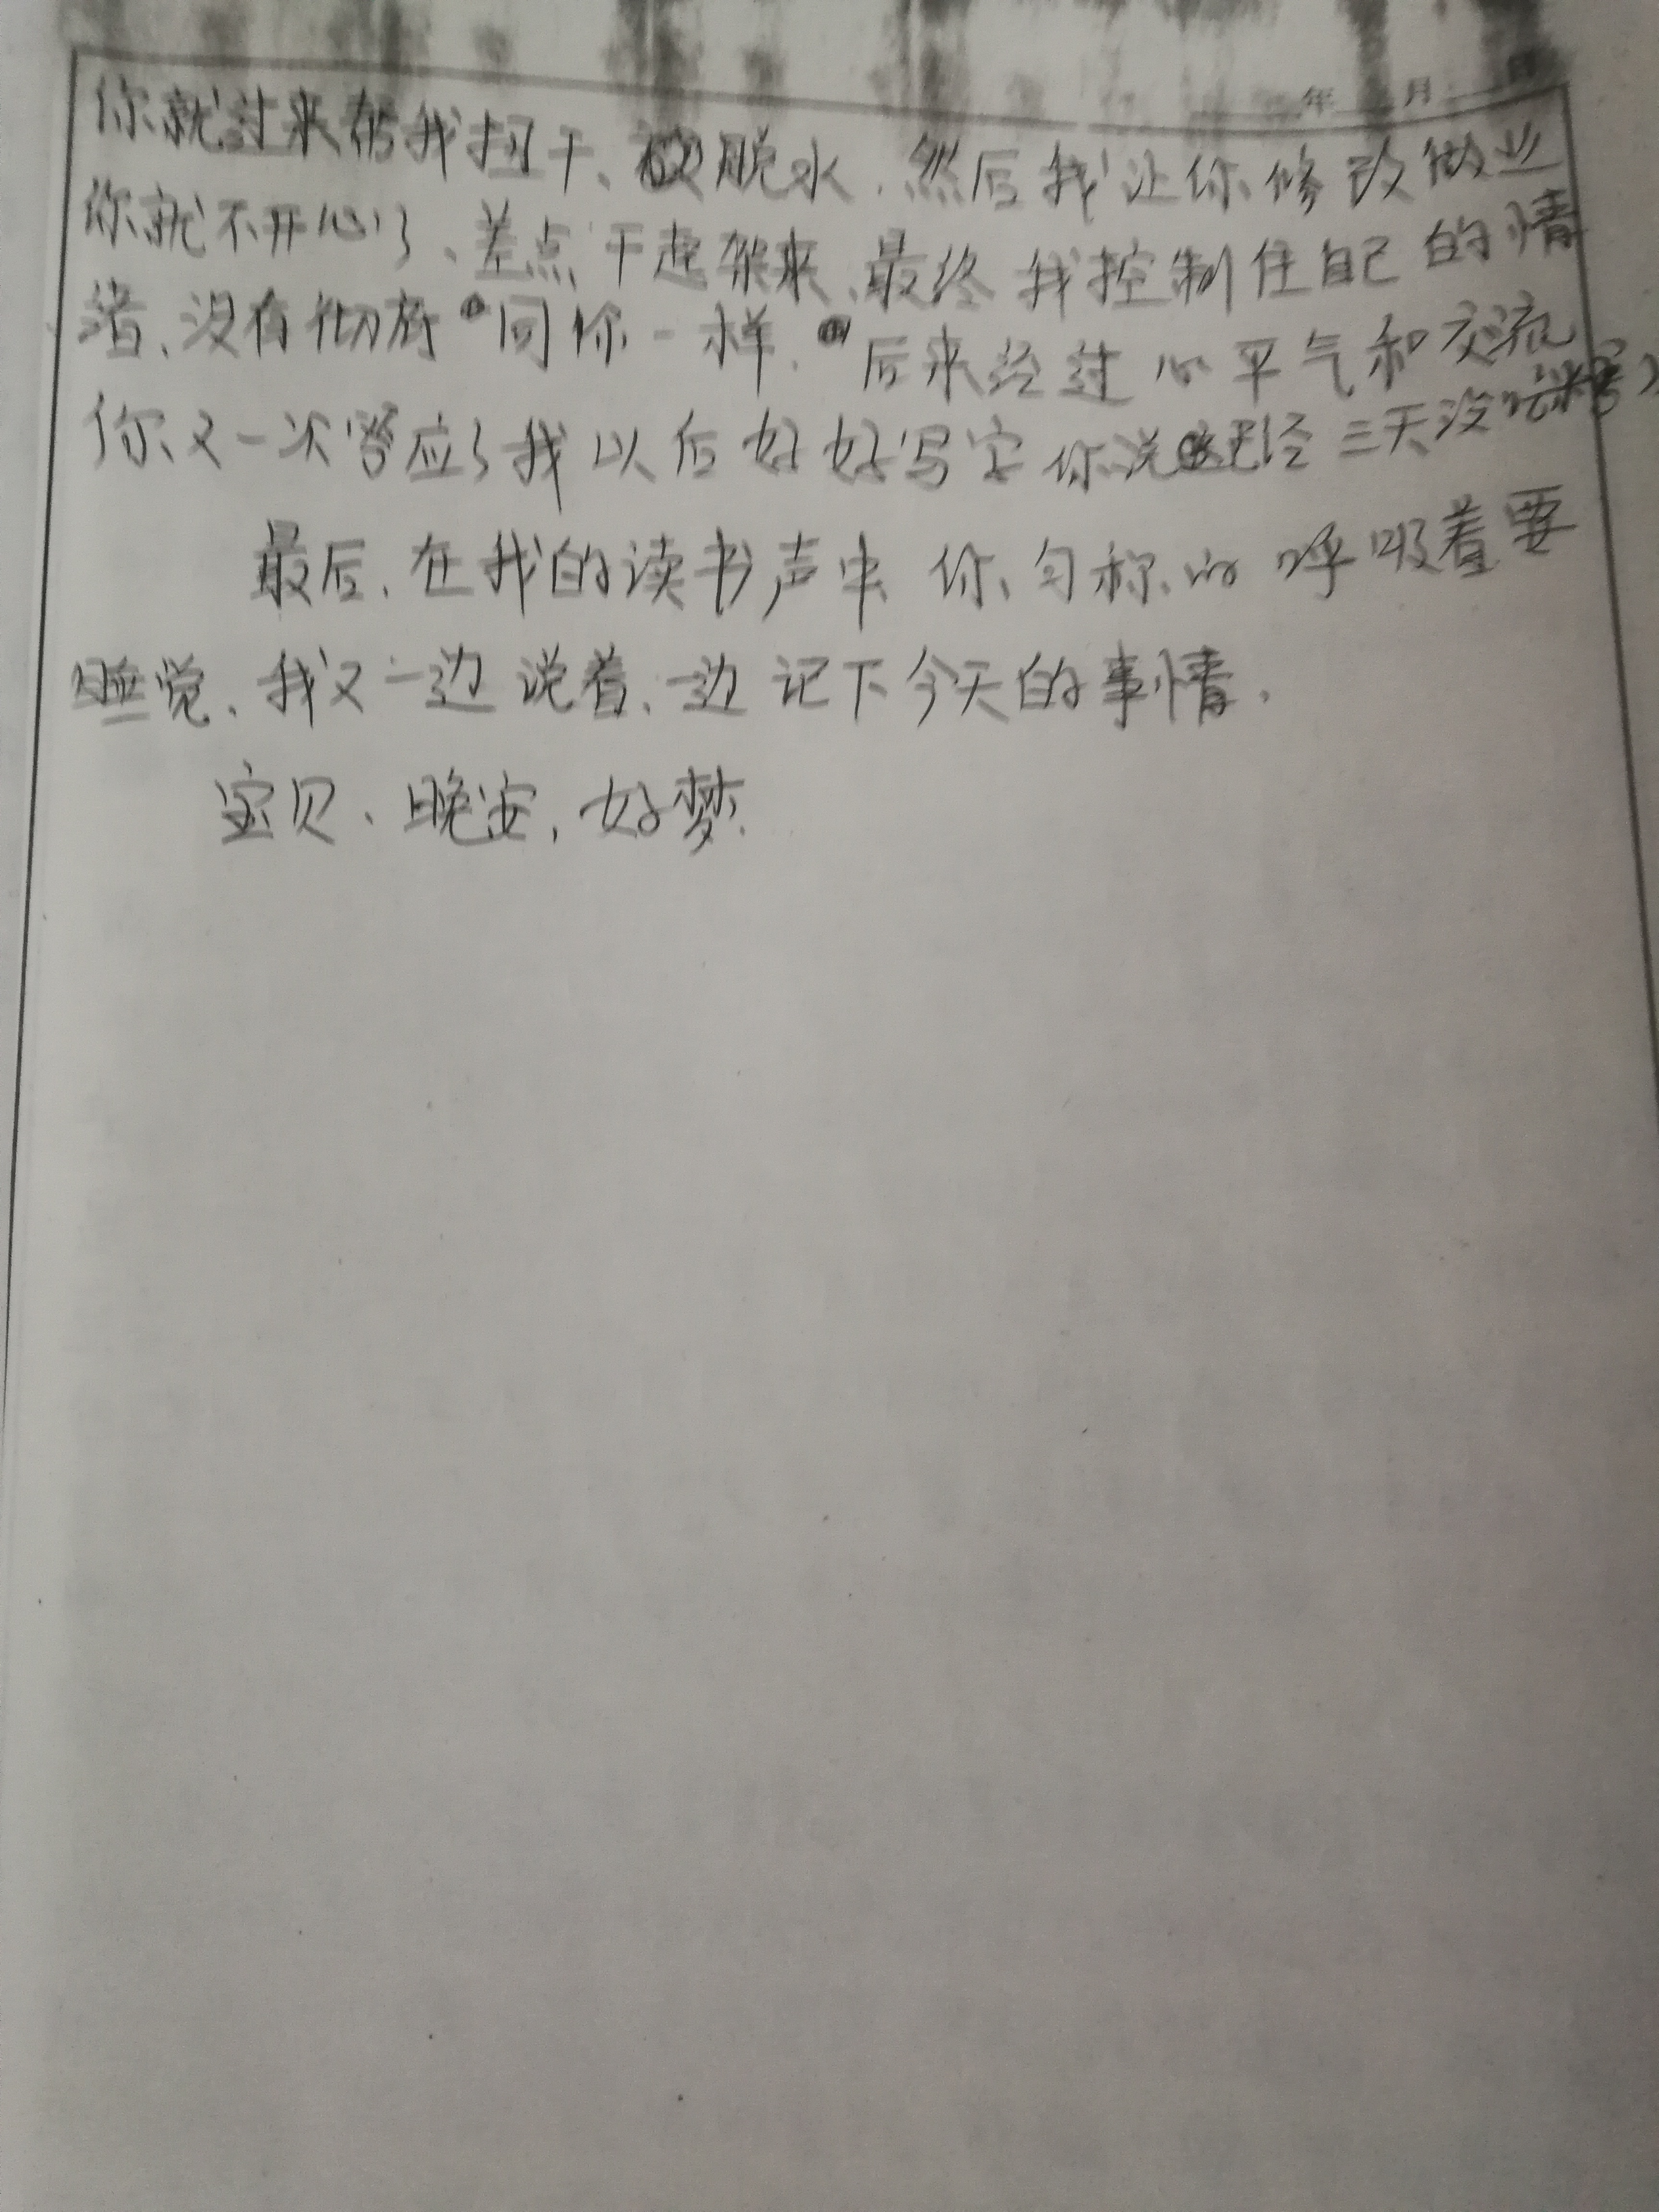 年 月 日
你就过来帮我扭干、脱水，然后我让你修改做业
你就不开心了、差点干起架来、最终我控制住自己的情
绪、没有彻底同你一样，后来经过心平气和交流
你又一次答应了我以后好好写字你说已经三天没
最后，在我的读书声中 你匀称的呼吸着要
睡觉、我又一边说着、一边记下今天的事情，
宝贝、晚安，好梦.